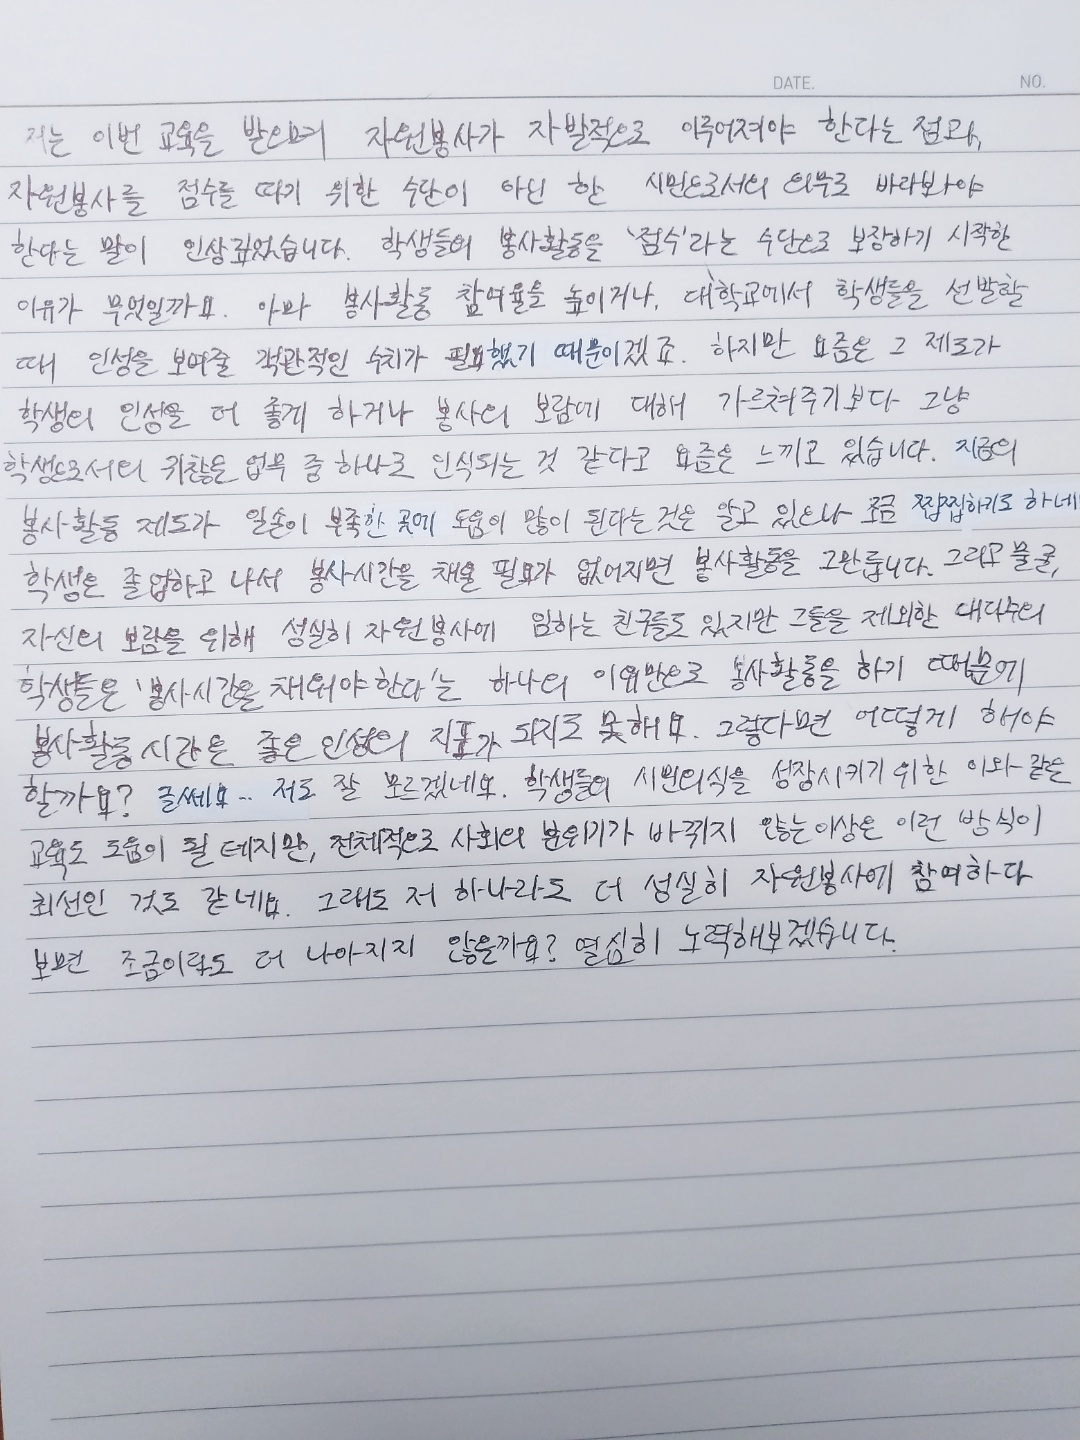 DATE. NO.
저는 이번 교육을 받으며 자원봉사가 자발적으로 이루어져야 한다는 점과,
자원봉사를 점수를 따기 위한 수단이 아닌 한 시민으로서의 의무로 바라봐야
한다는 말이 인상 깊었습니다. 학생들의 봉사활동을 '점수'라는 수단으로 보장하기 시작한
이유가 무엇일까요. 아마 봉사활동 참여율을 높이거나, 대학교에서 학생들을 선발할
때 인성을 보여줄 객관적인 수치가 필요했기 때문이겠죠. 하지만 요즘은 그 제도가
학생의 인성을 더 좋게 하거나 봉사의 보람에 대해 가르쳐주기보다 그냥
학생으로서의 귀찮은 업무 중 하나로 인식되는 것 같다고 요즘은 느끼고 있습니다. 지금의
봉사활동 제도가 일손이 부족한 곳에 도움이 많이 된다는 것은 알고 있으나 조금 찝찝하기도 하네
학생은 졸업하고 나서 봉사시간을 채울 필요가 없어지면 봉사활동을 그만둡니다. 그리고 물론,
자신의 보람을 위해 성실히 자원봉사에 임하는 친구들도 있지만 그들을 제외한 대다수의
학생들은 '봉사시간을 채워야 한다'는 하나의 이유만으로 봉사활동을 하기 때문에
봉사활동 시간은 좋은 인성의 지표가 되지도 못해요. 그렇다면 어떻게 해야
할까요? 글쎄요... 저도 잘 모르겠네요. 학생들의 시민의식을 성장시키기 위한 이와 같은
교육도 도움이 될 테지만, 전체적으로 사회의 분위기가 바뀌지 않는 이상은 이런 방식이
최선인 것도 같네요. 그래도 저 하나라도 더 성실히 자원봉사에 참여하다
보면 조금이라도 더 나아지지 않을까요? 열심히 노력해보겠습니다.